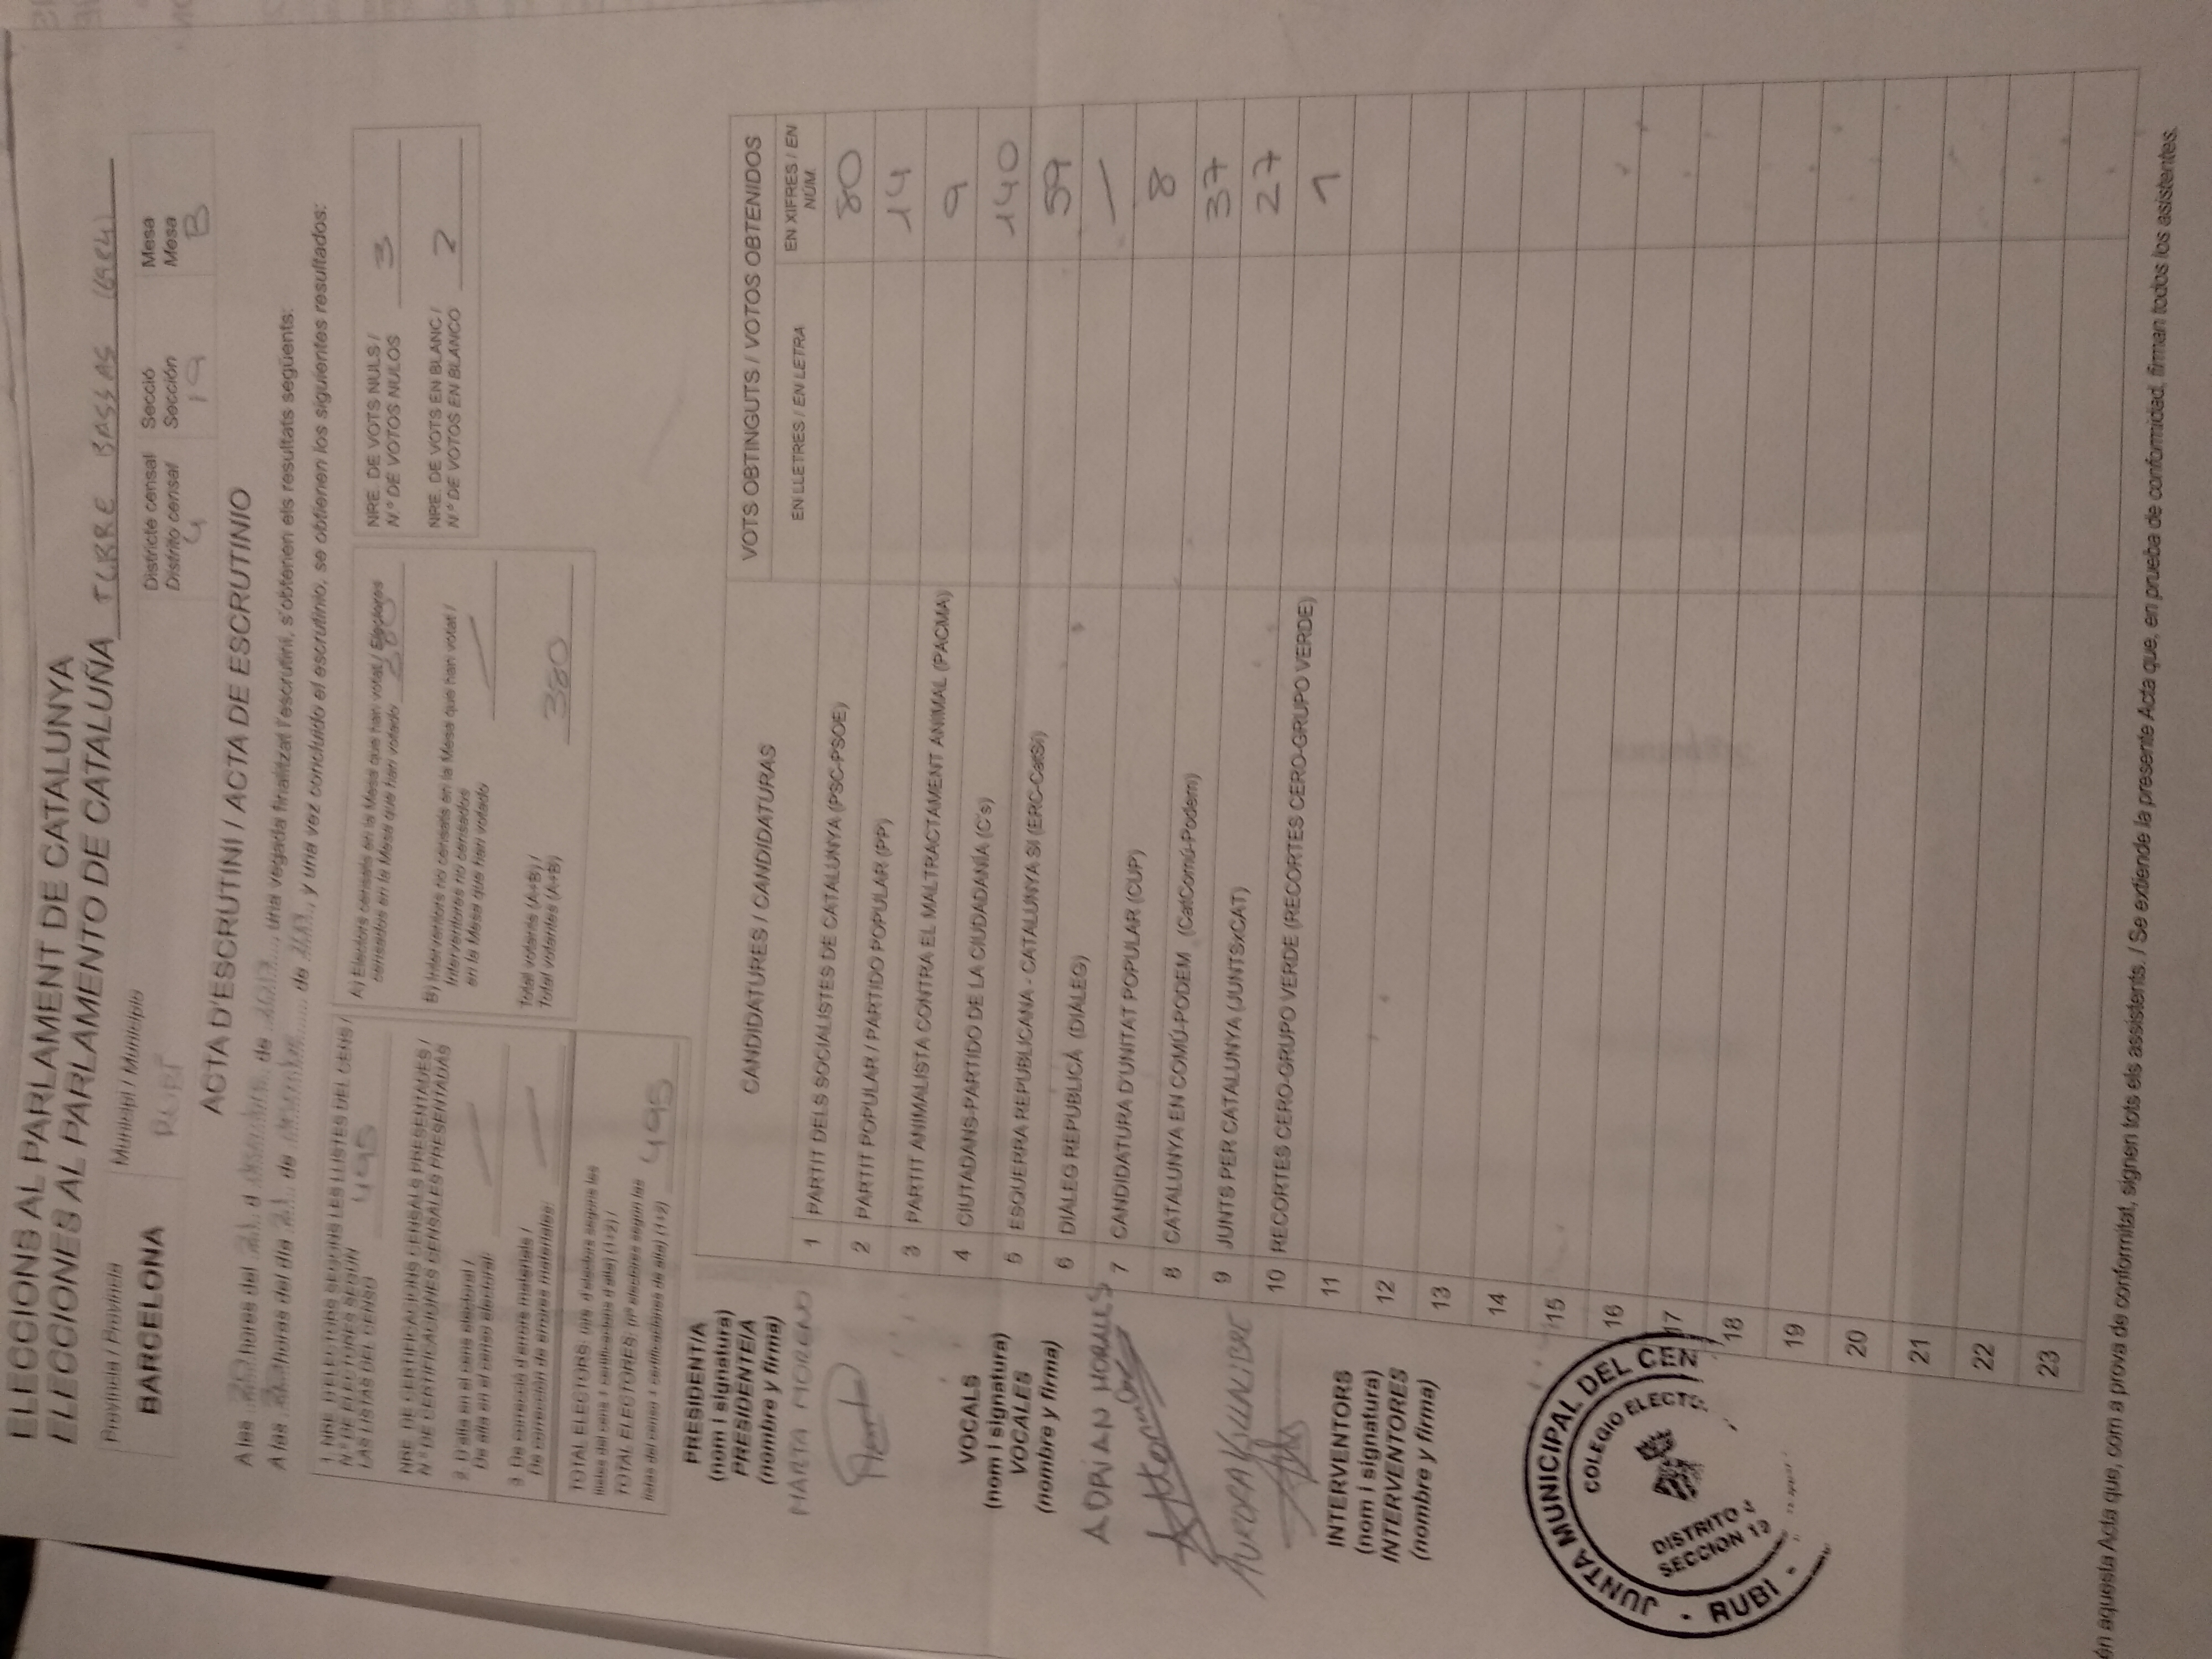 ELECCIONS AL PARLAMENT DE CATALUNYA
ELECCIONES AL PARLAMENTO DE CATALUÑA TORRE BASSAS
Província / Provincia
BARCELONA
Municipi / Municipio
RUBÍ
Districte censal Secció Mesa
Distrito censal Sección Mesa
4 19 B
ACTA D'ESCRUTINI / ACTA DE ESCRUTINIO
A les 20 hores del 21 d desembre de 2017, una vegada finalitzat l'escrutini, s'obtenen els resultats següents:
A las horas del día 21 de de, y una vez concluido el escrutinio, se obtienen los siguientes resultados:
1. NRE. D'ELECTORS SEGONS LES LLISTES DEL CENS /
N.º DE ELECTORES SEGÚN
LAS LISTAS DEL CENSO 495
NRE. DE CERTIFICACIONS CENSALS PRESENTADES /
N.º DE CERTIFICACIONES CENSALES PRESENTADAS
2. D'alta en el cens electoral /
De alta en el censo electoral: —
3. De correcció d'errors materials /
De corrección de errores materiales: —
TOTAL ELECTORS: (nre. d'electors segons les
llistes del cens + certificacions d'alta) (1+2) /
TOTAL ELECTORES: (nº electores según las
listas del censo + certificaciones de alta) (1+2) 495
A) Electors censats en la Mesa que han votat / Electores
censados en la Mesa que han votado 380
B) Interventors no censats en la Mesa que han votat /
Interventores no censados
en la Mesa que han votado —
Total votants (A+B) /
Total votantes (A+B) 380
NRE. DE VOTS NULS /
N.º DE VOTOS NULOS 3
NRE. DE VOTS EN BLANC /
N.º DE VOTOS EN BLANCO 2
PRESIDENT/A
(nom i signatura)
PRESIDENTE/A
(nombre y firma)
MARTA MORENO
VOCALS
(nom i signatura)
VOCALES
(nombre y firma)
ADRIAN MORALES
AURORA VILLALIBRE
INTERVENTORS
(nom i signatura)
INTERVENTORES
(nombre y firma)
CANDIDATURES / CANDIDATURAS
VOTS OBTINGUTS / VOTOS OBTENIDOS
EN LLETRES / EN LETRA
EN XIFRES / EN
NÚM.
1 PARTIT DELS SOCIALISTES DE CATALUNYA (PSC-PSOE) 80
2 PARTIT POPULAR / PARTIDO POPULAR (PP) 14
3 PARTIT ANIMALISTA CONTRA EL MALTRACTAMENT ANIMAL (PACMA) 9
4 CIUTADANS-PARTIDO DE LA CIUDADANÍA (C's) 140
5 ESQUERRA REPUBLICANA - CATALUNYA SÍ (ERC-CatSí) 59
6 DIÀLEG REPUBLICÀ (DIÀLEG) —
7 CANDIDATURA D'UNITAT POPULAR (CUP) 8
8 CATALUNYA EN COMÚ-PODEM (CatComú-Podem) 37
9 JUNTS PER CATALUNYA (JUNTSxCAT) 27
10 RECORTES CERO-GRUPO VERDE (RECORTES CERO-GRUPO VERDE) 1
11
12
13
14
15
16
17
18
19
20
21
22
23
JUNTA MUNICIPAL DEL CEN
· RUBÍ ·
COLEGIO ELECTO
DISTRITO 4
SECCION 19
én aquesta Acta que, com a prova de conformitat, signen tots els assistents. / Se extiende la presente Acta que, en prueba de conformidad, firman todos los asistentes.